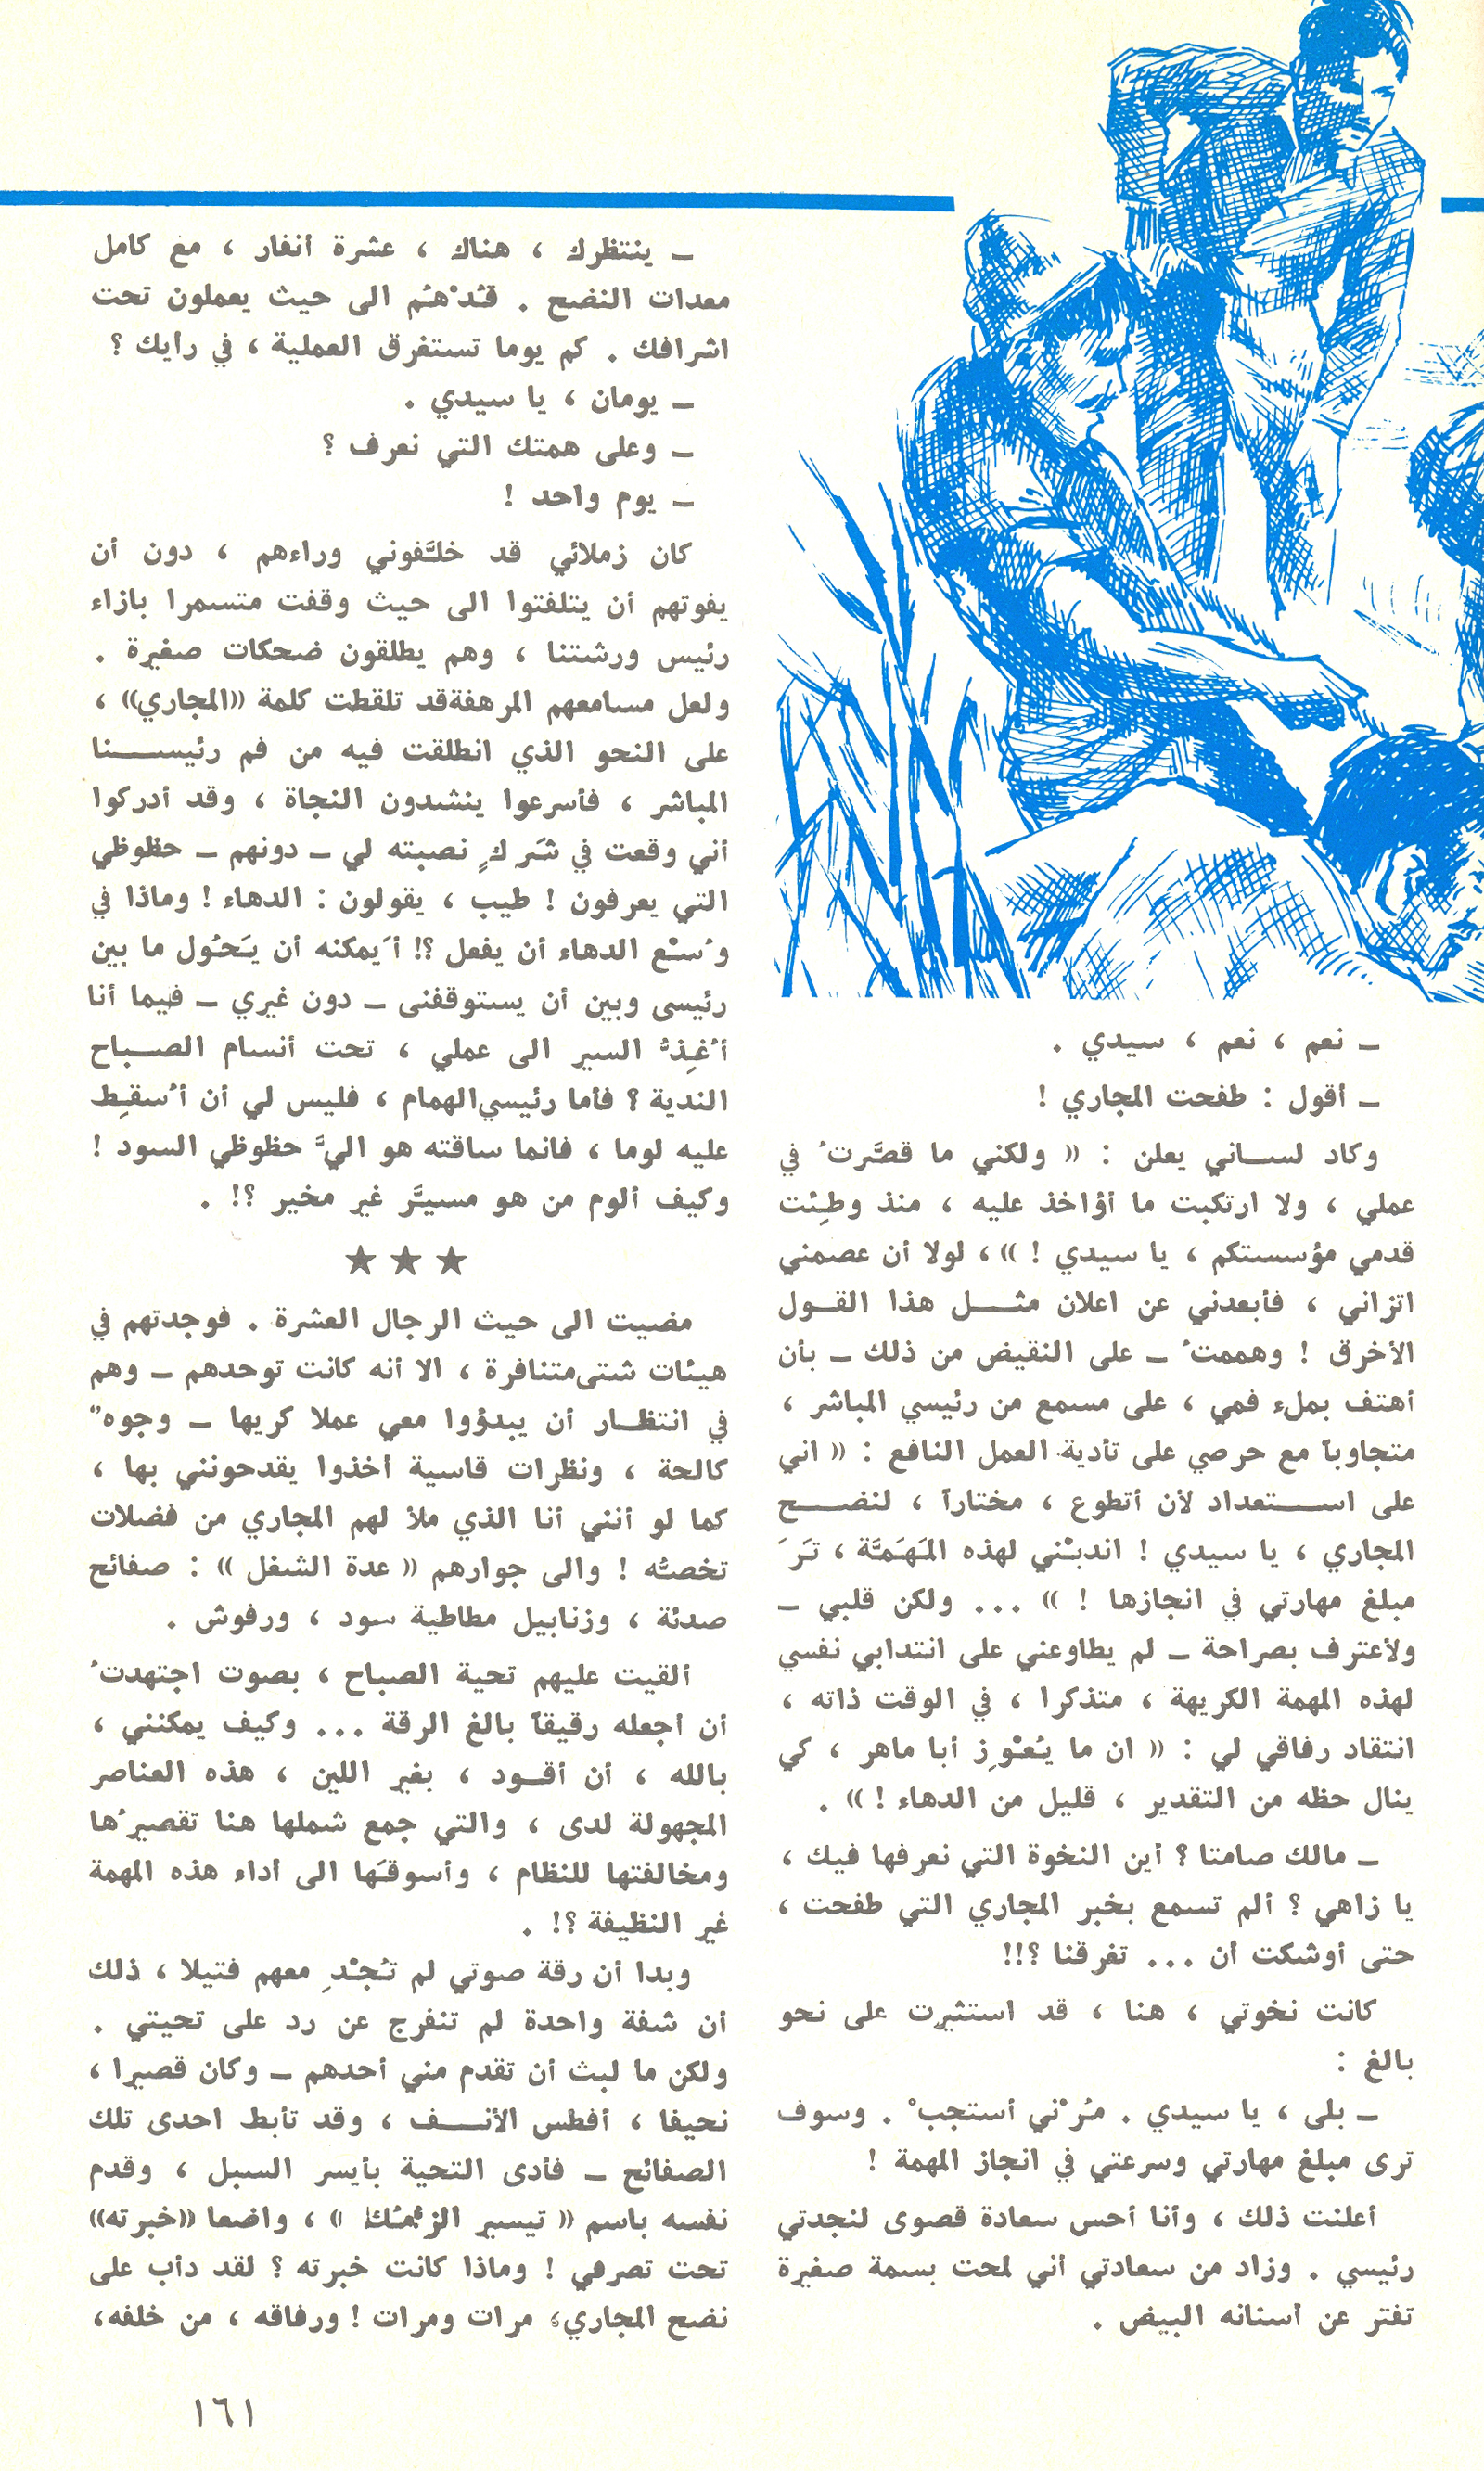 ـ نعم ، نعم ، سيدي .
ـ أقول : طفحت المجاري !
وكاد لساني يعلن : « ولكني ما قصَّرتُ في
عملي ، ولا ارتكبت ما أؤاخذ عليه ، منذ وطِئت
قدمي مؤسستكم ، يا سيدي ! » ، لولا أن عصمني
اتزاني ، فأبعدني عن اعلان مثل هذا القول
الأخرق ! وهممتُ ـ على النقيض من ذلك ـ بأن
أهتف بملء فمي ، على مسمع من رئيسي المباشر ،
متجاوباً مع حرصي على تأدية العمل النافع : « اني
على استعداد لأن أتطوع ، مختاراً ، لنضح
المجاري ، يا سيدي ! اندبْني لهذه المَهَمَّة ، تَرَ
مبلغ مهارتي في انجازها ! » ... ولكن قلبي ـ
ولأعترف بصراحة ـ لم يطاوعني على انتدابي نفسي
لهذه المهمة الكريهة ، متذكرا ، في الوقت ذاته ،
انتقاد رفاقي لي : « ان ما يُعْوِز أبا ماهر ، كي
ينال حظه من التقدير ، قليل من الدهاء ! » .
ـ مالك صامتا ؟ أين النخوة التي نعرفها فيك ،
يا زاهي ؟ ألم تسمع بخبر المجاري التي طفحت ،
حتى أوشكت أن ... تغرقنا ؟!!
كانت نخوتي ، هنا ، قد استثيرت على نحو
بالغ :
ـ بلى ، يا سيدي . مُرْني أستجبْ . وسوف
ترى مبلغ مهارتي وسرعتي في انجاز المهمة !
أعلنت ذلك ، وأنا أحس سعادة قصوى لنجدتي
رئيسي . وزاد من سعادتي أني لمحت بسمة صغيرة
تفتر عن أسنانه البيض .
ـ ينتظرك ، هناك ، عشرة أنفار ، مع كامل
معدات النضح . قُدْهُم الى حيث يعملون تحت
اشرافك . كم يوما تستغرق العملية ، في رأيك ؟
ـ يومان ، يا سيدي .
ـ وعلى همتك التي نعرف ؟
ـ يوم واحد !
كان زملائي قد خلَّفوني وراءهم ، دون أن
يفوتهم أن يتلفتوا الى حيث وقفت متسمرا بازاء
رئيس ورشتنا ، وهم يطلقون ضحكات صغيرة .
ولعل مسامعهم المرهفة قد تلقطت كلمة «المجاري» ،
على النحو الذي انطلقت فيه من فم رئيسنا
المباشر ، فأسرعوا ينشدون النجاة ، وقد أدركوا
أني وقعت في شَركٍ نصبته لي ـ دونهم ـ حظوظي
التي يعرفون ! طيب ، يقولون : الدهاء ! وماذا في
وُسْع الدهاء أن يفعل ؟! أَيمكنه أن يَحُول ما بين
رئيسى وبين أن يستوقفنى ـ دون غيري ـ فيما أنا
أُغِذُّ السير الى عملي ، تحت أنسام الصباح
الندية ؟ فأما رئيسي الهمام ، فليس لي أن أُسقِط
عليه لوما ، فانما ساقته هو اليَّ حظوظي السود !
وكيف ألوم من هو مسيَّر غير مخير ؟! .
★ ★ ★
مضيت الى حيث الرجال العشرة . فوجدتهم في
هيئات شتى متنافرة ، الا أنه كانت توحدهم ـ وهم
في انتظار أن يبدؤوا معي عملا كريها ـ وجوهٌ
كالحة ، ونظرات قاسية أخذوا يقدحونني بها ،
كما لو أنني أنا الذي ملأ لهم المجاري من فضلات
تخصُّه ! والى جوارهم « عدة الشغل » : صفائح
صدئة ، وزنابيل مطاطية سود ، ورفوش .
ألقيت عليهم تحية الصباح ، بصوت اجتهدتُ
أن أجعله رقيقاً بالغ الرقة ... وكيف يمكنني ،
بالله ، أن أقود ، بغير اللين ، هذه العناصر
المجهولة لدى ، والتي جمع شملها هنا تقصيرُها
ومخالفتها للنظام ، وأسوقَها الى أداء هذه المهمة
غير النظيفة ؟! .
وبدا أن رقة صوتي لم تُجْدِ معهم فتيلا ، ذلك
أن شفة واحدة لم تنفرج عن رد على تحيتي .
ولكن ما لبث أن تقدم مني أحدهم ـ وكان قصيرا ،
نحيفا ، أفطس الأنف ، وقد تأبط احدى تلك
الصفائح ـ فأدى التحية بأيسر السبل ، وقدم
نفسه باسم « تيسير » ، واضعا «خبرته»
تحت تصرفي ! وماذا كانت خبرته ؟ لقد دأب على
نضح المجاري، مرات ومرات ! ورفاقه ، من خلفه،
١٦١